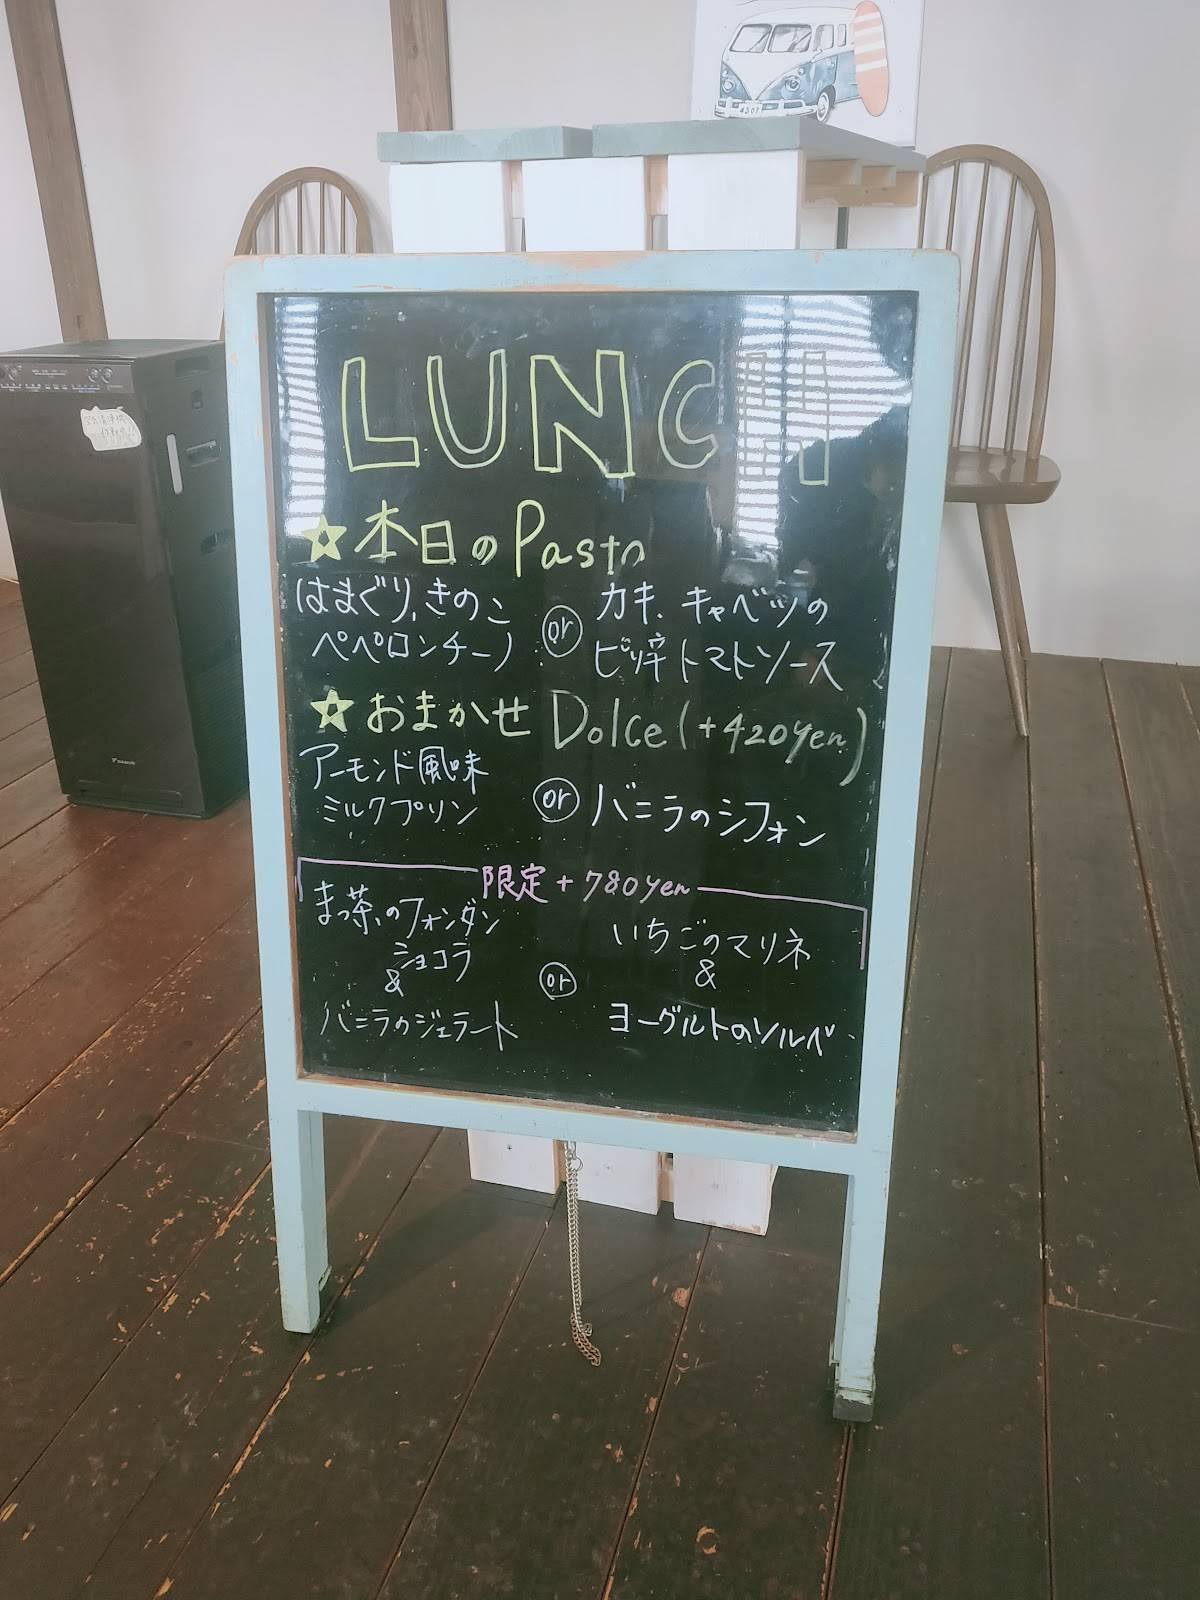 LUNCH
☆本日のPasta
はまぐり、きのこ
ペペロンチーノ
or
カキ、キャベツの
ピリ辛トマトソース
☆おまかせ Dolce(+420yen)
アーモンド風味
ミルクプリン
or
バニラのシフォン
限定+780yen
まっ茶のフォンダン
ショコラ
&
バニラのジェラート
or
いちごのマリネ
&
ヨーグルトのソルベ
空気清浄機
DAIKIN